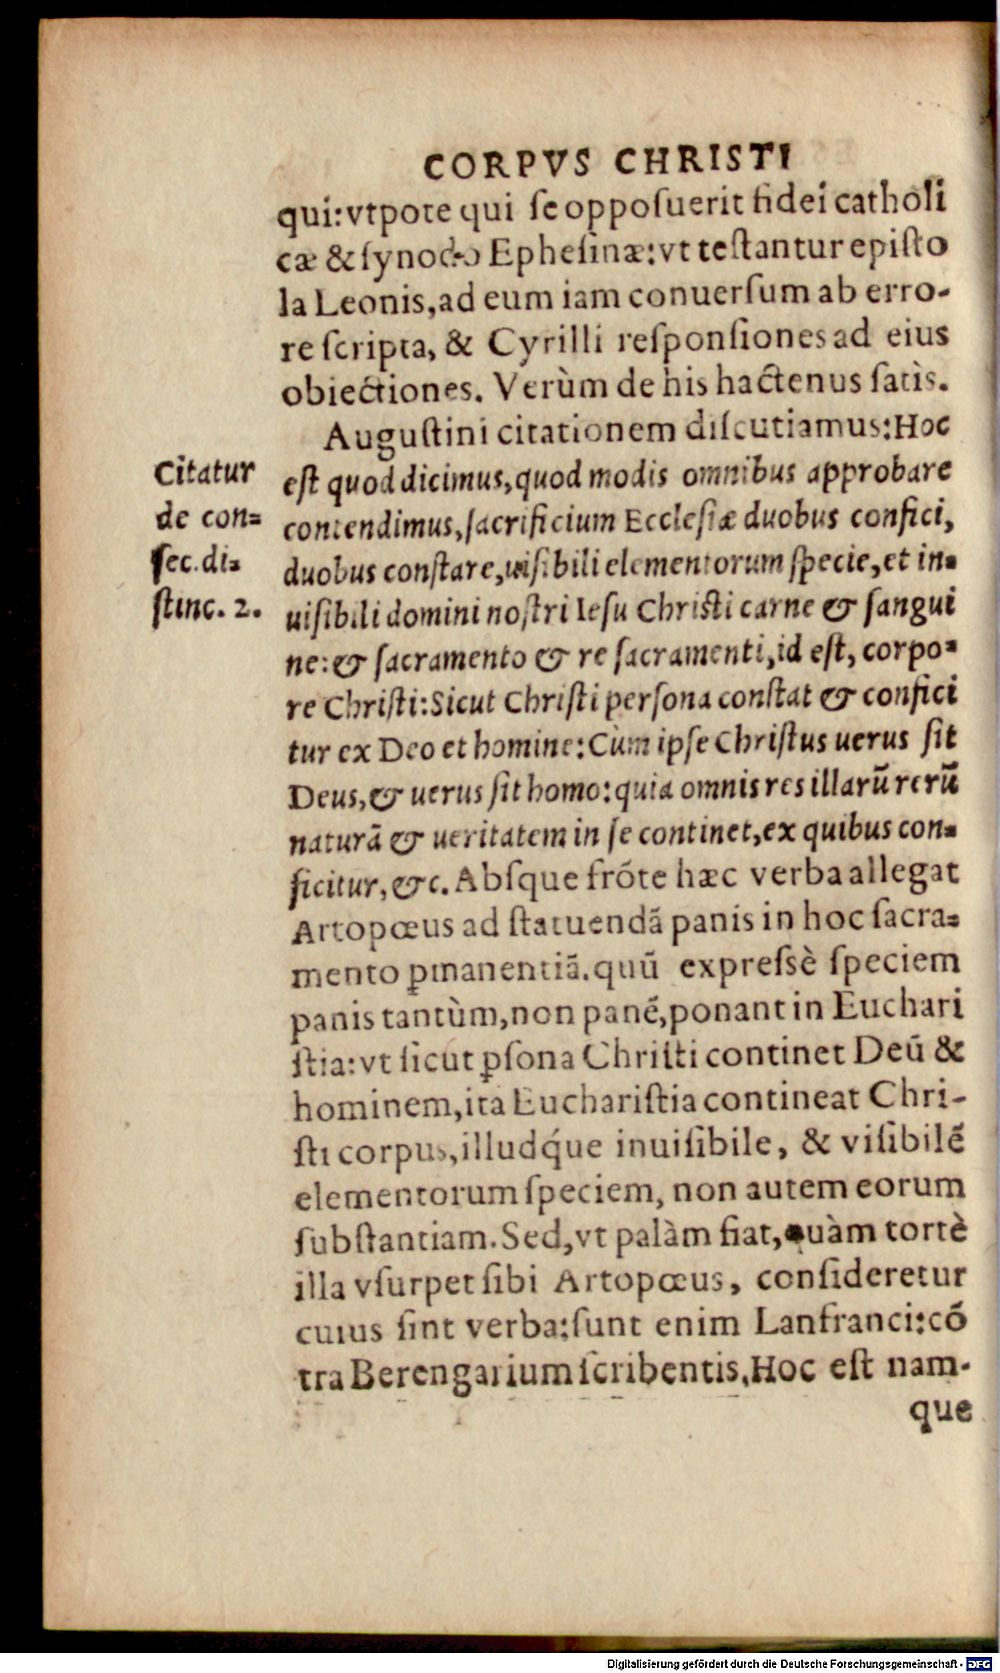 CORPVS CHRISTI
qui: vtpote qui ſe oppoſuerit fidei catholi
cæ & ſynodo Epheſinæ: vt teſtantur epiſto
la Leonis, ad eum iam conuerſum ab erro-
re ſcripta, & Cyrilli reſponſiones ad eius
obiectiones. Verùm de his hactenus ſatìs.
Auguſtini citationem diſcutiamus: Hoc
est quod dicimus, quod modis omnibus approbare
contendimus, ſacrificium Eccleſiæ duobus confici,
duobus conſtare, uiſibili elementorum ſpecie, et in-
uiſibili domini noſtri Ieſu Chriſti carne & ſangui
ne: & ſacramento & re ſacramenti, id eſt, corpo-
re Chriſti: Sicut Chriſti perſona conſtat & confici
tur ex Deo et homine: Cùm ipſe Chriſtus uerus ſit
Deus, & uerus ſit homo: quia omnis res illarũ rerũ
naturã & ueritatem in ſe continet, ex quibus con-
ficitur, &c. Abſque frõte hæc verba allegat
Artopœus ad ſtatuendã panis in hoc ſacra-
mento ꝑmanentiã. quũ expreſsè ſpeciem
panis tantùm, non panẽ, ponant in Euchari
ſtia: vt ſicut ꝑſona Chriſti continet Deũ &
hominem, ita Euchariſtia contineat Chri-
ſti corpus, illudq́ue inuiſibile, & viſibilẽ
elementorum ſpeciem, non autem eorum
ſubſtantiam. Sed, vt palàm fiat, quàm tortè
illa vſurpet ſibi Artopœus, conſideretur
cuius ſint verba: ſunt enim Lanfranci: cõ
tra Berengarium ſcribentis, Hoc eſt nam-
que
Citatur
de con-
ſec. di-
ſtinc. 2.
Digitalisierung gefördert durch die Deutsche Forschungsgemeinschaft - DFG